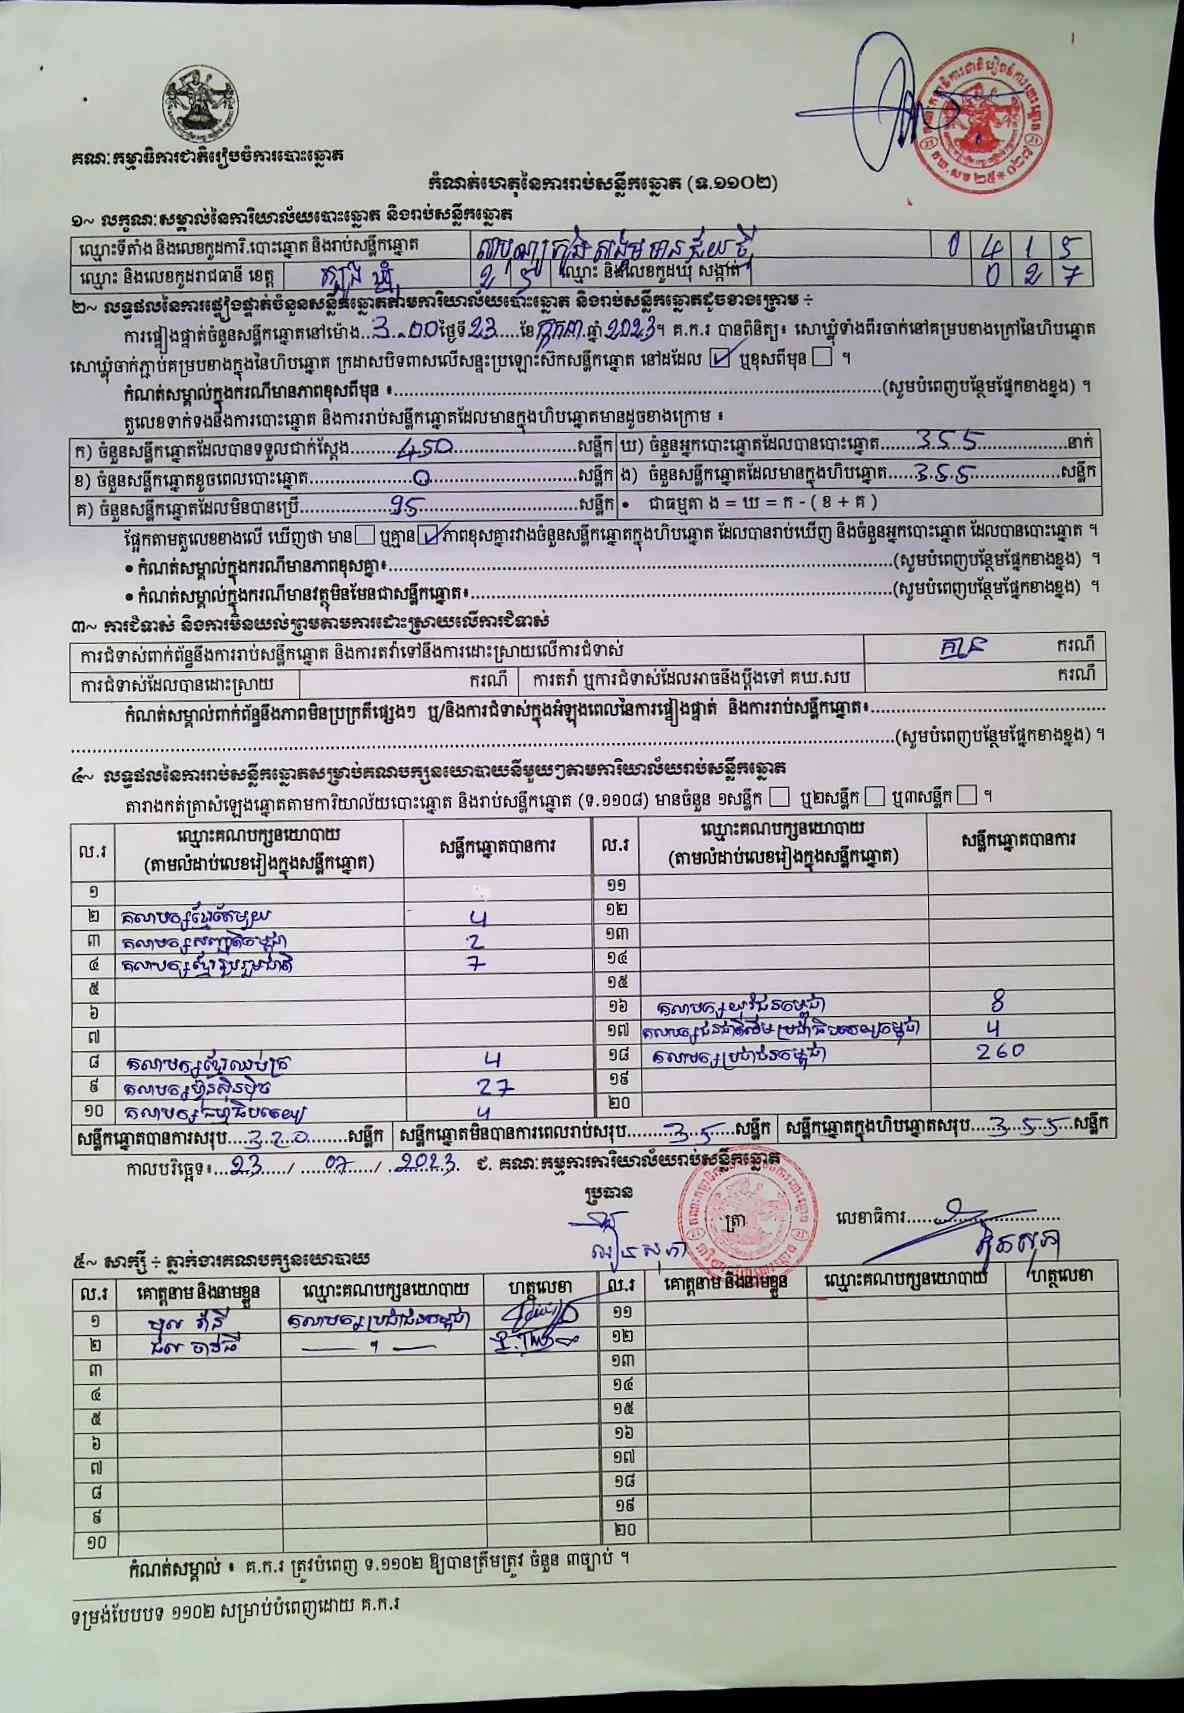 គណៈកម្មាធិការជាតិរៀបចំការបោះឆ្នោត
កំណត់ហេតុនៃការរាប់សន្លឹកឆ្នោត (ទ.១១០២)
១~ លក្ខណៈសម្គាល់នៃការិយាល័យបោះឆ្នោត និងរាប់សន្លឹកឆ្នោត
ឈ្មោះទីតាំង និងលេខកូដការិ.បោះឆ្នោត និងរាប់សន្លឹកឆ្នោត 0 4 1 5
ឈ្មោះ និងលេខកូដរាជធានី ខេត្ត ត្បូងឃ្មុំ 2 5 ឈ្មោះ និងលេខកូដឃុំ សង្កាត់ 0 2 7
២~ លទ្ធផលនៃការផ្ទៀងផ្ទាត់ចំនួនសន្លឹកឆ្នោតតាមការិយាល័យបោះឆ្នោត និងរាប់សន្លឹកឆ្នោតដូចខាងក្រោម ÷
ការផ្ទៀងផ្ទាត់ចំនួនសន្លឹកឆ្នោតនៅម៉ោង...3...00 ថ្ងៃទី 23 ខែ កក្កដា ឆ្នាំ 2023។ គ.ក.រ បានពិនិត្យ៖ សោឃ្លុំទាំងពីរចាក់នៅគម្របខាងក្រៅនៃហិបឆ្នោត
សោឃ្លុំចាក់ភ្ជាប់គម្របខាងក្នុងនៃហិបឆ្នោត ក្រដាសបិទពាសលើសន្ទះប្រឡោះស៊កសន្លឹកឆ្នោត នៅដដែល ☑ ឬខុសពីមុន ☐ ។
កំណត់សម្គាល់ក្នុងករណីមានភាពខុសពីមុន ៖......(សូមបំពេញបន្ថែមផ្នែកខាងខ្នង) ។
តួលេខទាក់ទងនឹងការបោះឆ្នោត និងការរាប់សន្លឹកឆ្នោតដែលមានក្នុងហិបឆ្នោតមានដូចខាងក្រោម ៖
ក) ចំនួនសន្លឹកឆ្នោតដែលបានទទួលជាក់ស្តែង......450......សន្លឹក ឃ) ចំនួនអ្នកបោះឆ្នោតដែលបានបោះឆ្នោត......355......នាក់
ខ) ចំនួនសន្លឹកឆ្នោតខូចពេលបោះឆ្នោត......0......សន្លឹក ង) ចំនួនសន្លឹកឆ្នោតដែលមានក្នុងហិបឆ្នោត......355......សន្លឹក
គ) ចំនួនសន្លឹកឆ្នោតដែលមិនបានប្រើ......95......សន្លឹក • ជាធម្មតា ង = ឃ = ក - ( ខ + គ )
ផ្អែកតាមតួលេខខាងលើ ឃើញថា មាន ☐ ឬគ្មាន ☑ ភាពខុសគ្នារវាងចំនួនសន្លឹកឆ្នោតក្នុងហិបឆ្នោត ដែលបានរាប់ឃើញ និងចំនួនអ្នកបោះឆ្នោត ដែលបានបោះឆ្នោត ។
• កំណត់សម្គាល់ក្នុងករណីមានភាពខុសគ្នា៖......(សូមបំពេញបន្ថែមផ្នែកខាងខ្នង) ។
• កំណត់សម្គាល់ក្នុងករណីមានវត្ថុមិនមែនជាសន្លឹកឆ្នោត៖......(សូមបំពេញបន្ថែមផ្នែកខាងខ្នង) ។
៣~ ការជំទាស់ និងការមិនយល់ព្រមតាមការដោះស្រាយលើការជំទាស់
ការជំទាស់ពាក់ព័ន្ធនឹងការរាប់សន្លឹកឆ្នោត និងការតវ៉ាទៅនឹងការដោះស្រាយលើការជំទាស់ គ្មាន ករណី
ការជំទាស់ដែលបានដោះស្រាយ ករណី ការតវ៉ា ឬការជំទាស់ដែលអាចនឹងប្តឹងទៅ គឃ.សប ករណី
កំណត់សម្គាល់ពាក់ព័ន្ធនឹងភាពមិនប្រក្រតីផ្សេងៗ ឬ/និងការជំទាស់ក្នុងអំឡុងពេលនៃការផ្ទៀងផ្ទាត់ និងការរាប់សន្លឹកឆ្នោត៖......
......(សូមបំពេញបន្ថែមផ្នែកខាងខ្នង) ។
៤~ លទ្ធផលនៃការរាប់សន្លឹកឆ្នោតសម្រាប់គណបក្សនយោបាយនីមួយៗតាមការិយាល័យរាប់សន្លឹកឆ្នោត
តារាងកត់ត្រាសំឡេងឆ្នោតតាមការិយាល័យបោះឆ្នោត និងរាប់សន្លឹកឆ្នោត (ទ.១១០៨) មានចំនួន ១សន្លឹក ☐ ឬ២សន្លឹក ☐ ឬ៣សន្លឹក ☐ ។
ល.រ ឈ្មោះគណបក្សនយោបាយ (តាមលំដាប់លេខរៀងក្នុងសន្លឹកឆ្នោត) សន្លឹកឆ្នោតបានការ ល.រ ឈ្មោះគណបក្សនយោបាយ (តាមលំដាប់លេខរៀងក្នុងសន្លឹកឆ្នោត) សន្លឹកឆ្នោតបានការ
១ ១១
២ គណបក្សខ្មែរតែមួយ 4 ១២
៣ គណបក្សសញ្ជាតិកម្ពុជា 2 ១៣
៤ គណបក្សខ្មែររួបរួមជាតិ 7 ១៤
៥ ១៥
៦ ១៦ គណបក្សយុវជនកម្ពុជា 8
៧ ១៧ គណបក្សជនជាតិដើមប្រជាធិបតេយ្យកម្ពុជា 4
៨ គណបក្សខ្មែរឈប់ក្រ 4 ១៨ គណបក្សប្រជាជនកម្ពុជា 260
៩ គណបក្សហ៊្វុនស៊ិនប៉ិច 27 ១៩
១០ គណបក្សធម្មាធិបតេយ្យ 4 ២០
សន្លឹកឆ្នោតបានការសរុប....320......សន្លឹក សន្លឹកឆ្នោតមិនបានការពេលរាប់សរុប......35....សន្លឹក សន្លឹកឆ្នោតក្នុងហិបឆ្នោតសរុប....355...សន្លឹក
កាលបរិច្ឆេទ៖...23..../....07..../..2023. ជ. គណៈកម្មការការិយាល័យរាប់សន្លឹកឆ្នោត
ប្រធាន
ត្រា
លេខាធិការ......
៥~ សាក្សី ÷ ភ្នាក់ងារគណបក្សនយោបាយ
ល.រ គោត្តនាម និងនាមខ្លួន ឈ្មោះគណបក្សនយោបាយ ហត្ថលេខា ល.រ គោត្តនាម និងនាមខ្លួន ឈ្មោះគណបក្សនយោបាយ ហត្ថលេខា
១ គណបក្សប្រជាជនកម្ពុជា ១១
២ — " — ១២
៣ ១៣
៤ ១៤
៥ ១៥
៦ ១៦
៧ ១៧
៨ ១៨
៩ ១៩
១០ ២០
កំណត់សម្គាល់ ៖ គ.ក.រ ត្រូវបំពេញ ទ.១១០២ ឱ្យបានត្រឹមត្រូវ ចំនួន ៣ច្បាប់ ។
ទម្រង់បែបបទ ១១០២ សម្រាប់បំពេញដោយ គ.ក.រ